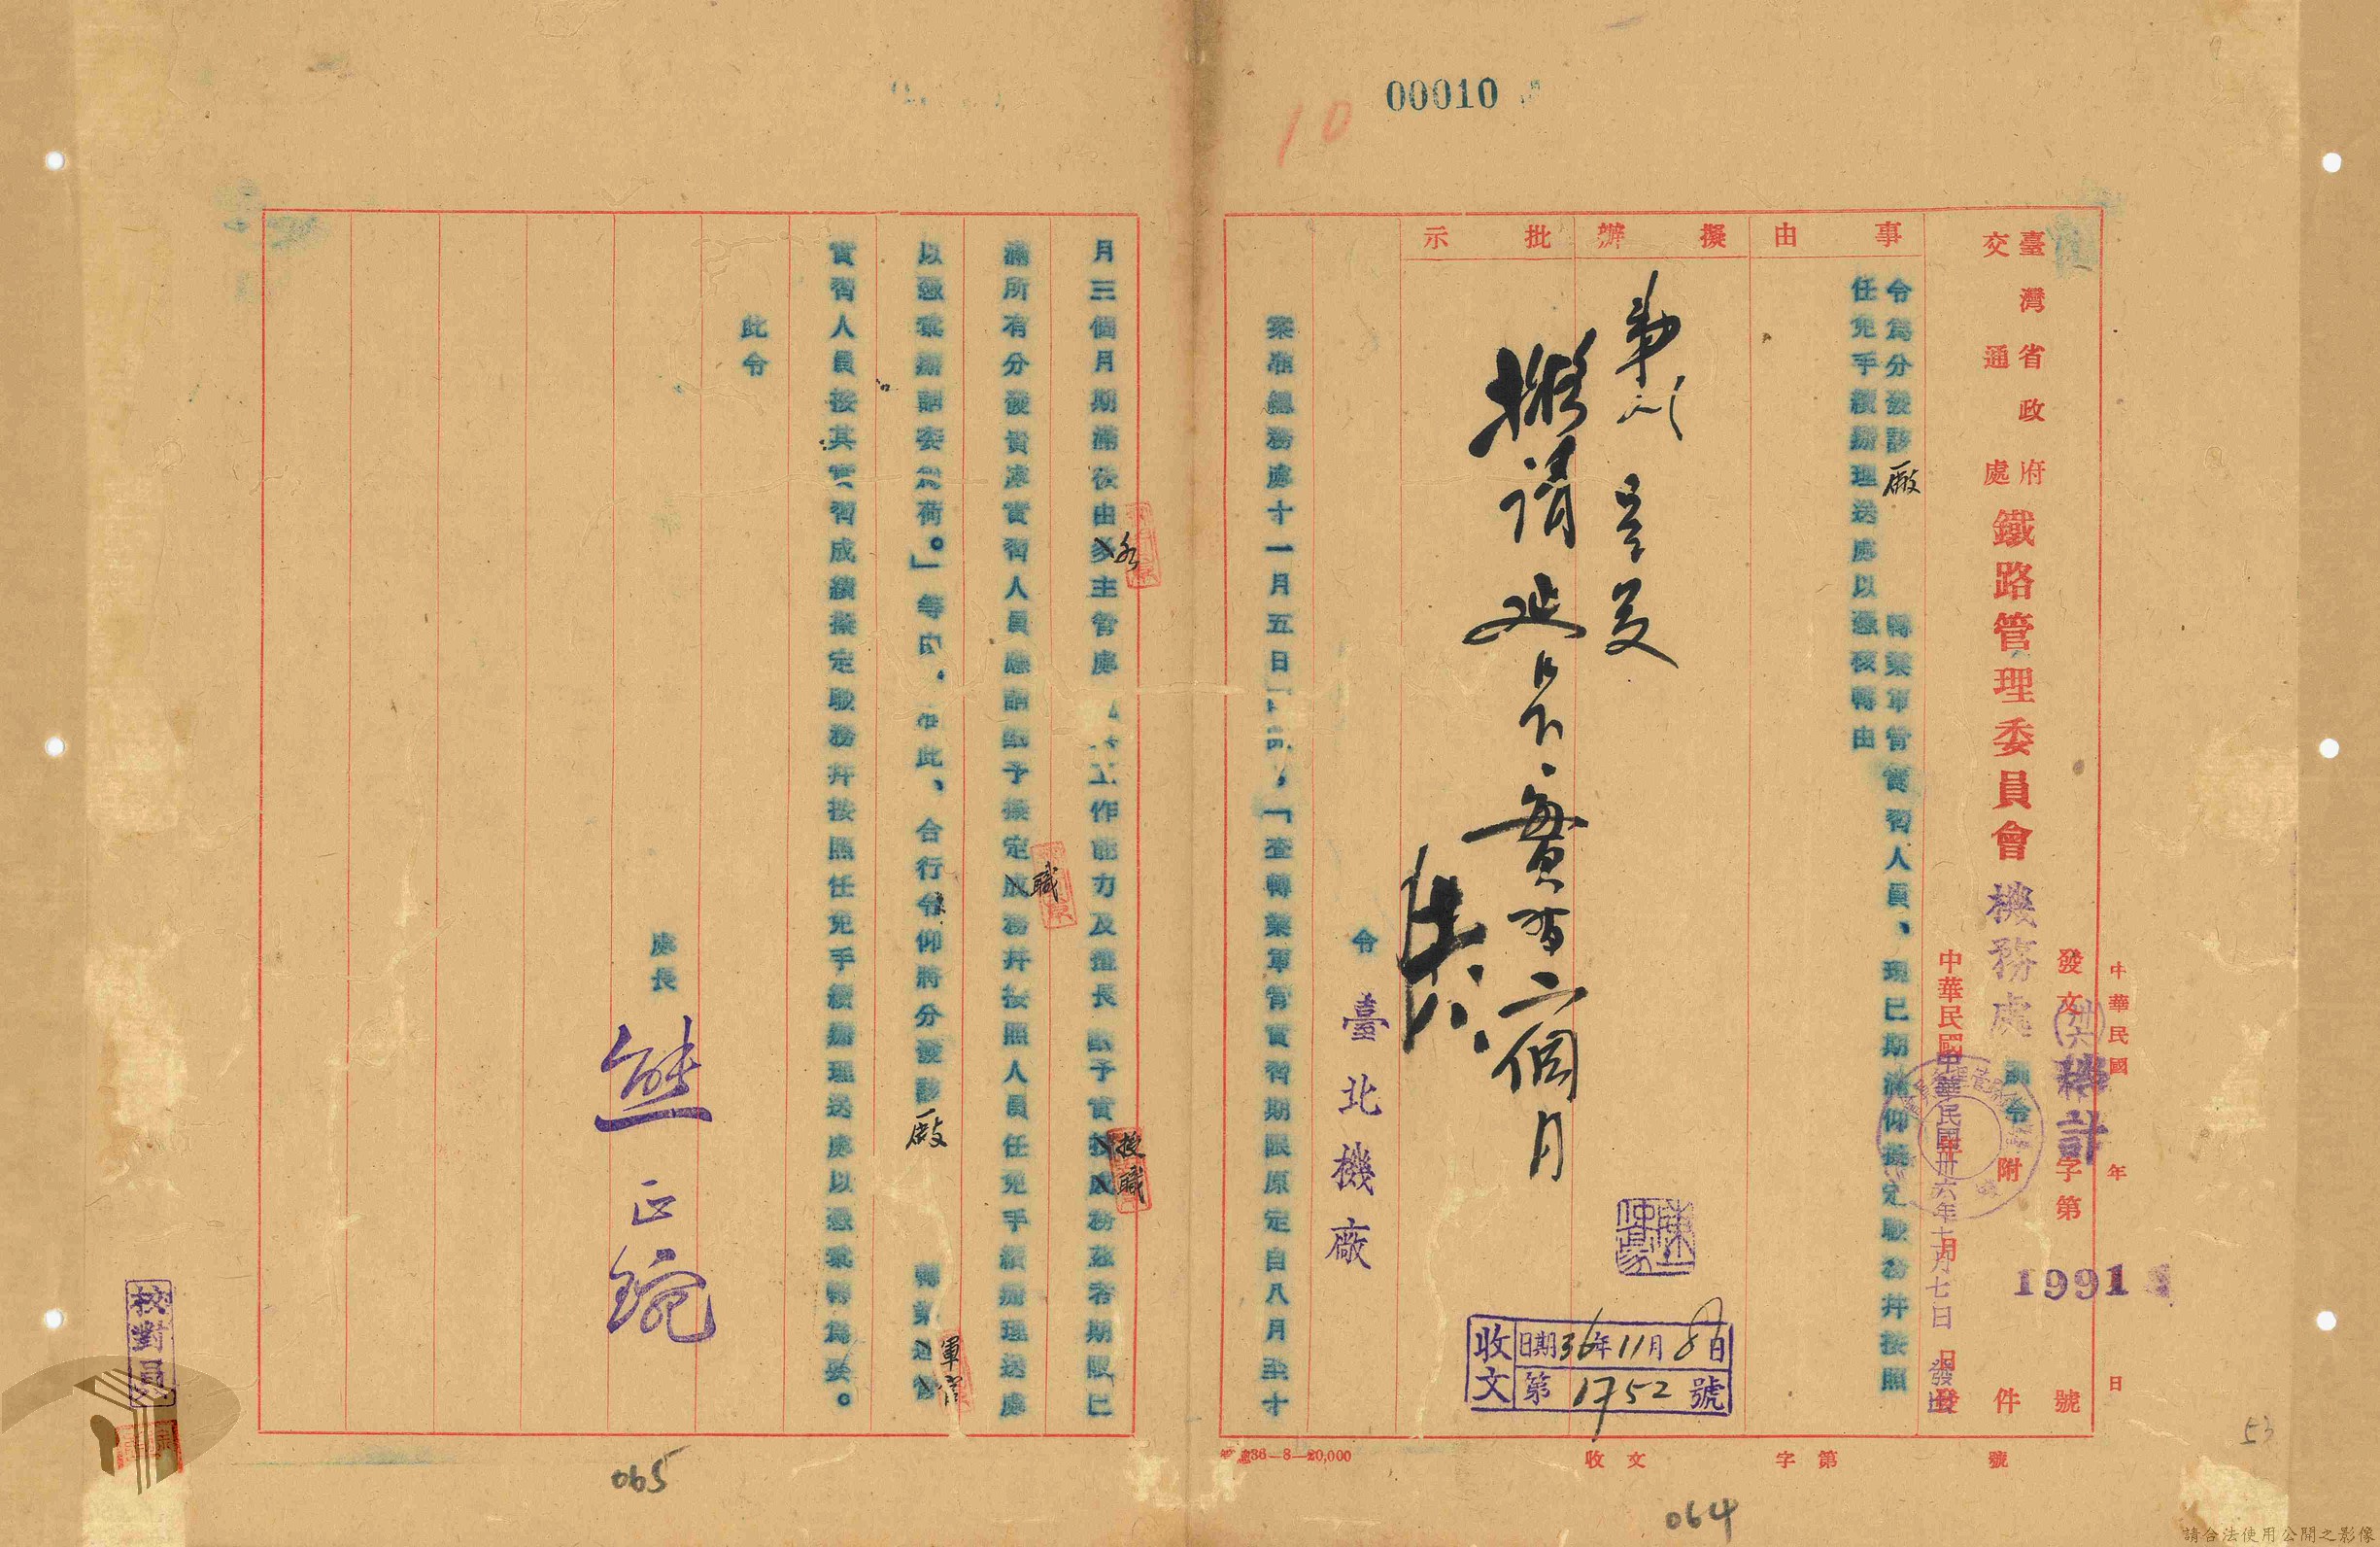 00010
10
臺灣省政府
交通處
鐵路管理委員會
機務處
訓令
附件
發文
卅六
機計
字第
19911
號
中華民國 年 月 日
中華民國卅六年十一月七日
發出
事由
擬辦
批示
令為分發該廠轉業軍官實習人員、現已期滿仰擬定職務并按照
任免手續辦理送處以憑核轉由
擬請延長實習二個月
收文
日期36年11月8日
第1752號
令
臺北機廠
案准總務處十一月五日
、「查轉業軍官實習期限原定自八月至十
月三個月期滿後由各主管處
工作能力及擅長
予實授職務茲者期限已
滿所有分發貴處實習人員應請
予擬定職務并按照人員任免手續辦理送處
以憑彙辦請查為荷。」等由、准此、合行令仰將分發該廠轉業軍官
實習人員按其實習成績擬定職務并按照任免手續辦理送處以憑彙轉為要。
此令
處長
熊正琬
校對員
36-8-20,000
收文
字第
號
065
064
53
請合法使用公開之影像